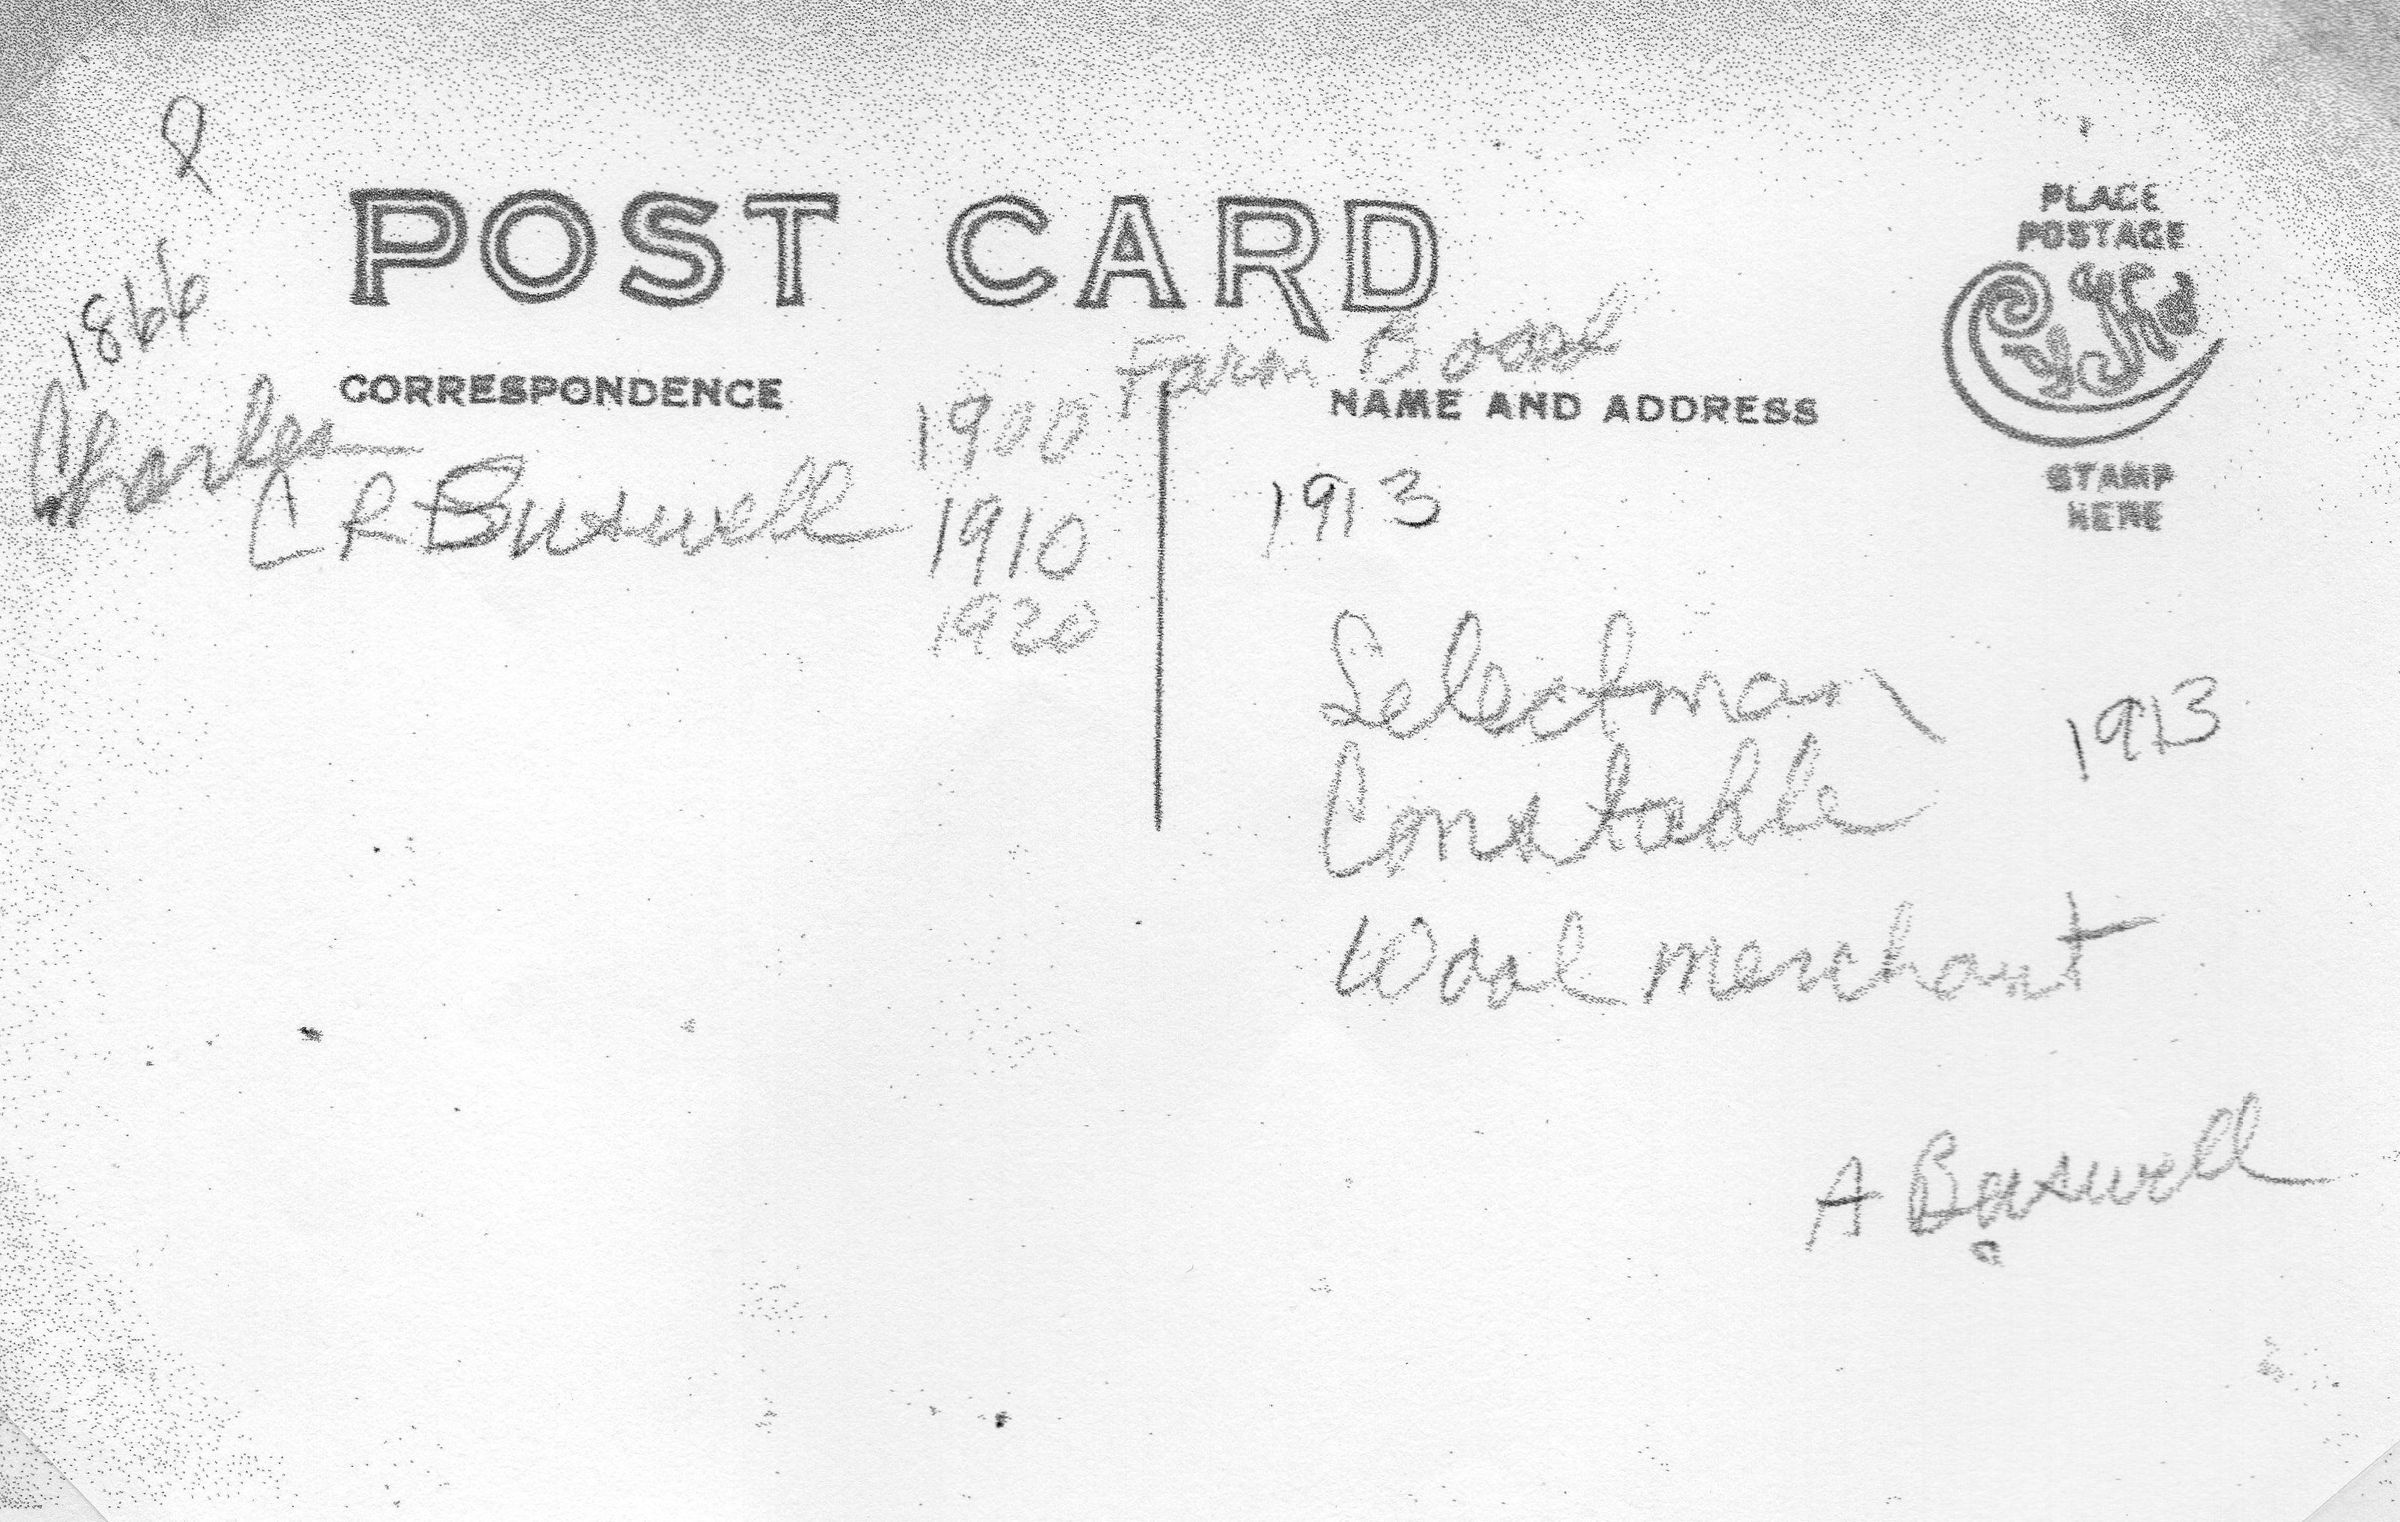 POST CARD
PLACE
POSTAGE
STAMP
HERE
1866
Farm Book
CORRESPONDENCE
NAME AND ADDRESS
Charles
C R Buswell
1900
1910
1920
1913
Selectman
Constable
1913
Wool merchant
A Buswell